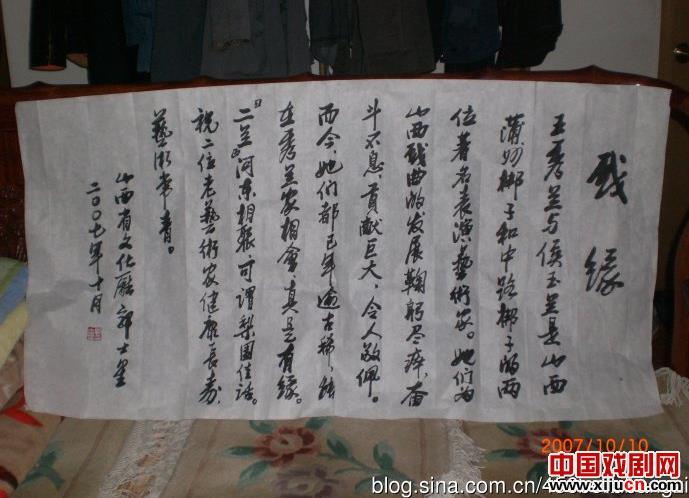 戏缘
王秀兰与侯玉兰是山西
蒲州梆子和中路梆子的两
位著名表演艺術家。她们为
山西戏曲的发展鞠躬尽瘁,奋
斗不息,贡献巨大,令人敬佩。
而今,她们都已年逾古稀,能
在秀兰家相會,真是有缘。
"二兰"河东相聚,可谓梨园佳话。
祝二位老藝術家健康長寿,
藝術常青。
山西省文化厅郭士星
二〇〇七年十月
2007/10/10
中国戏剧网
www.xijucn.com
blog.sina.com.cn/4